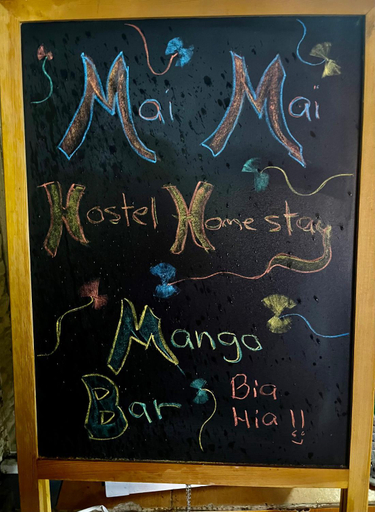 Mai Mai
Hostel Homestay
Mango
Bar Bia
Hia !!